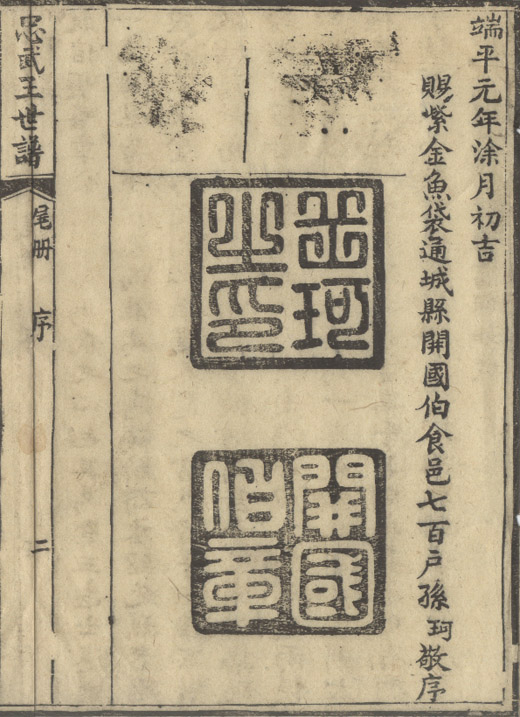 端平元年涂月初吉
賜紫金魚袋通城縣開國伯食邑七百户孫珂敬序
岳珂
之印
開國
伯章
忠武王世譜
尾册
序
二